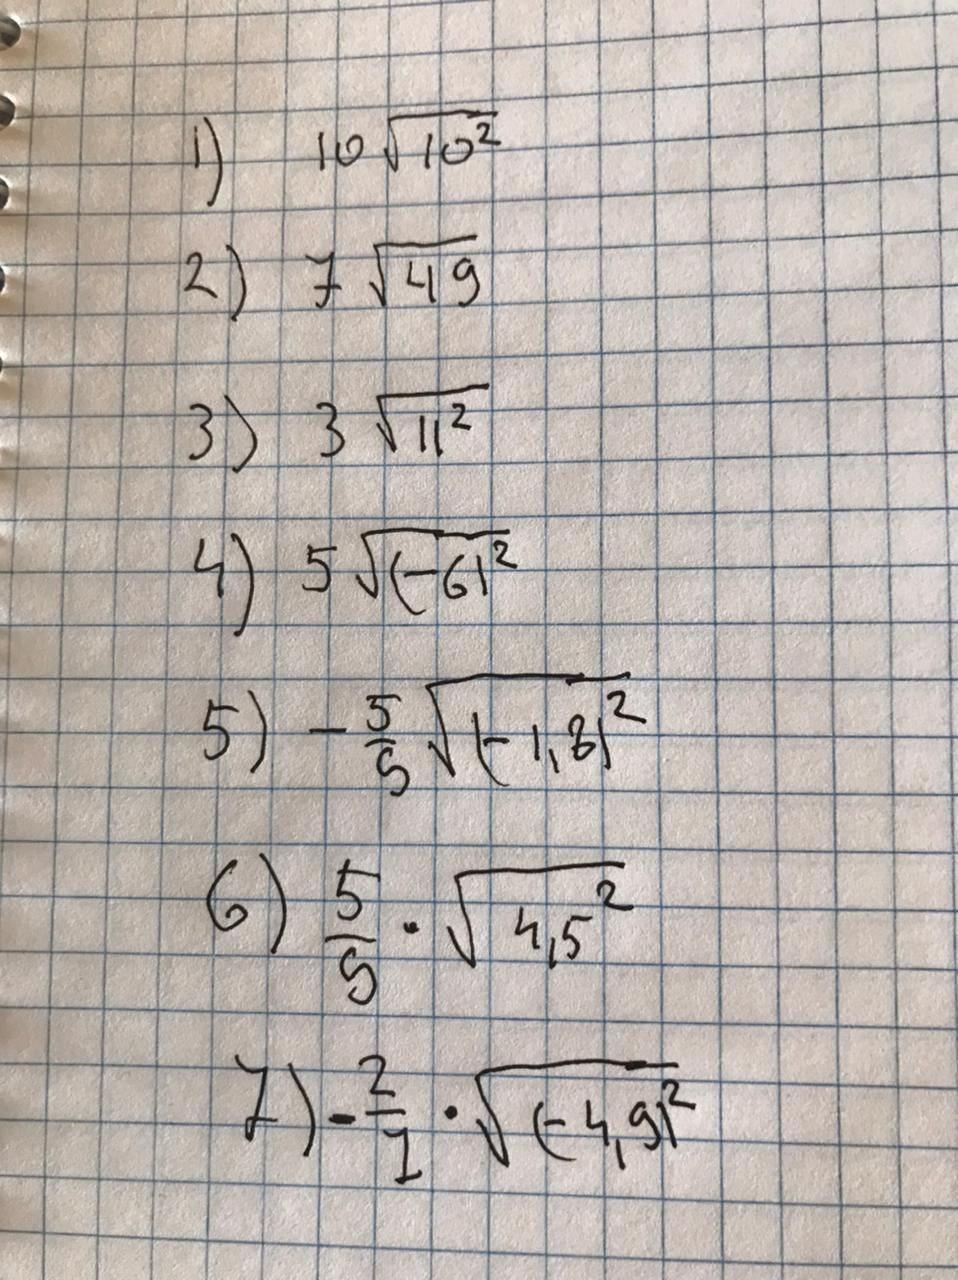 1) 10√10²
2) 7√49
3) 3√11²
4) 5√(-6)²
5) -5/9√(-1,8)²
6) 5/9·√4,5²
7) -2/7·√(-4,9)²